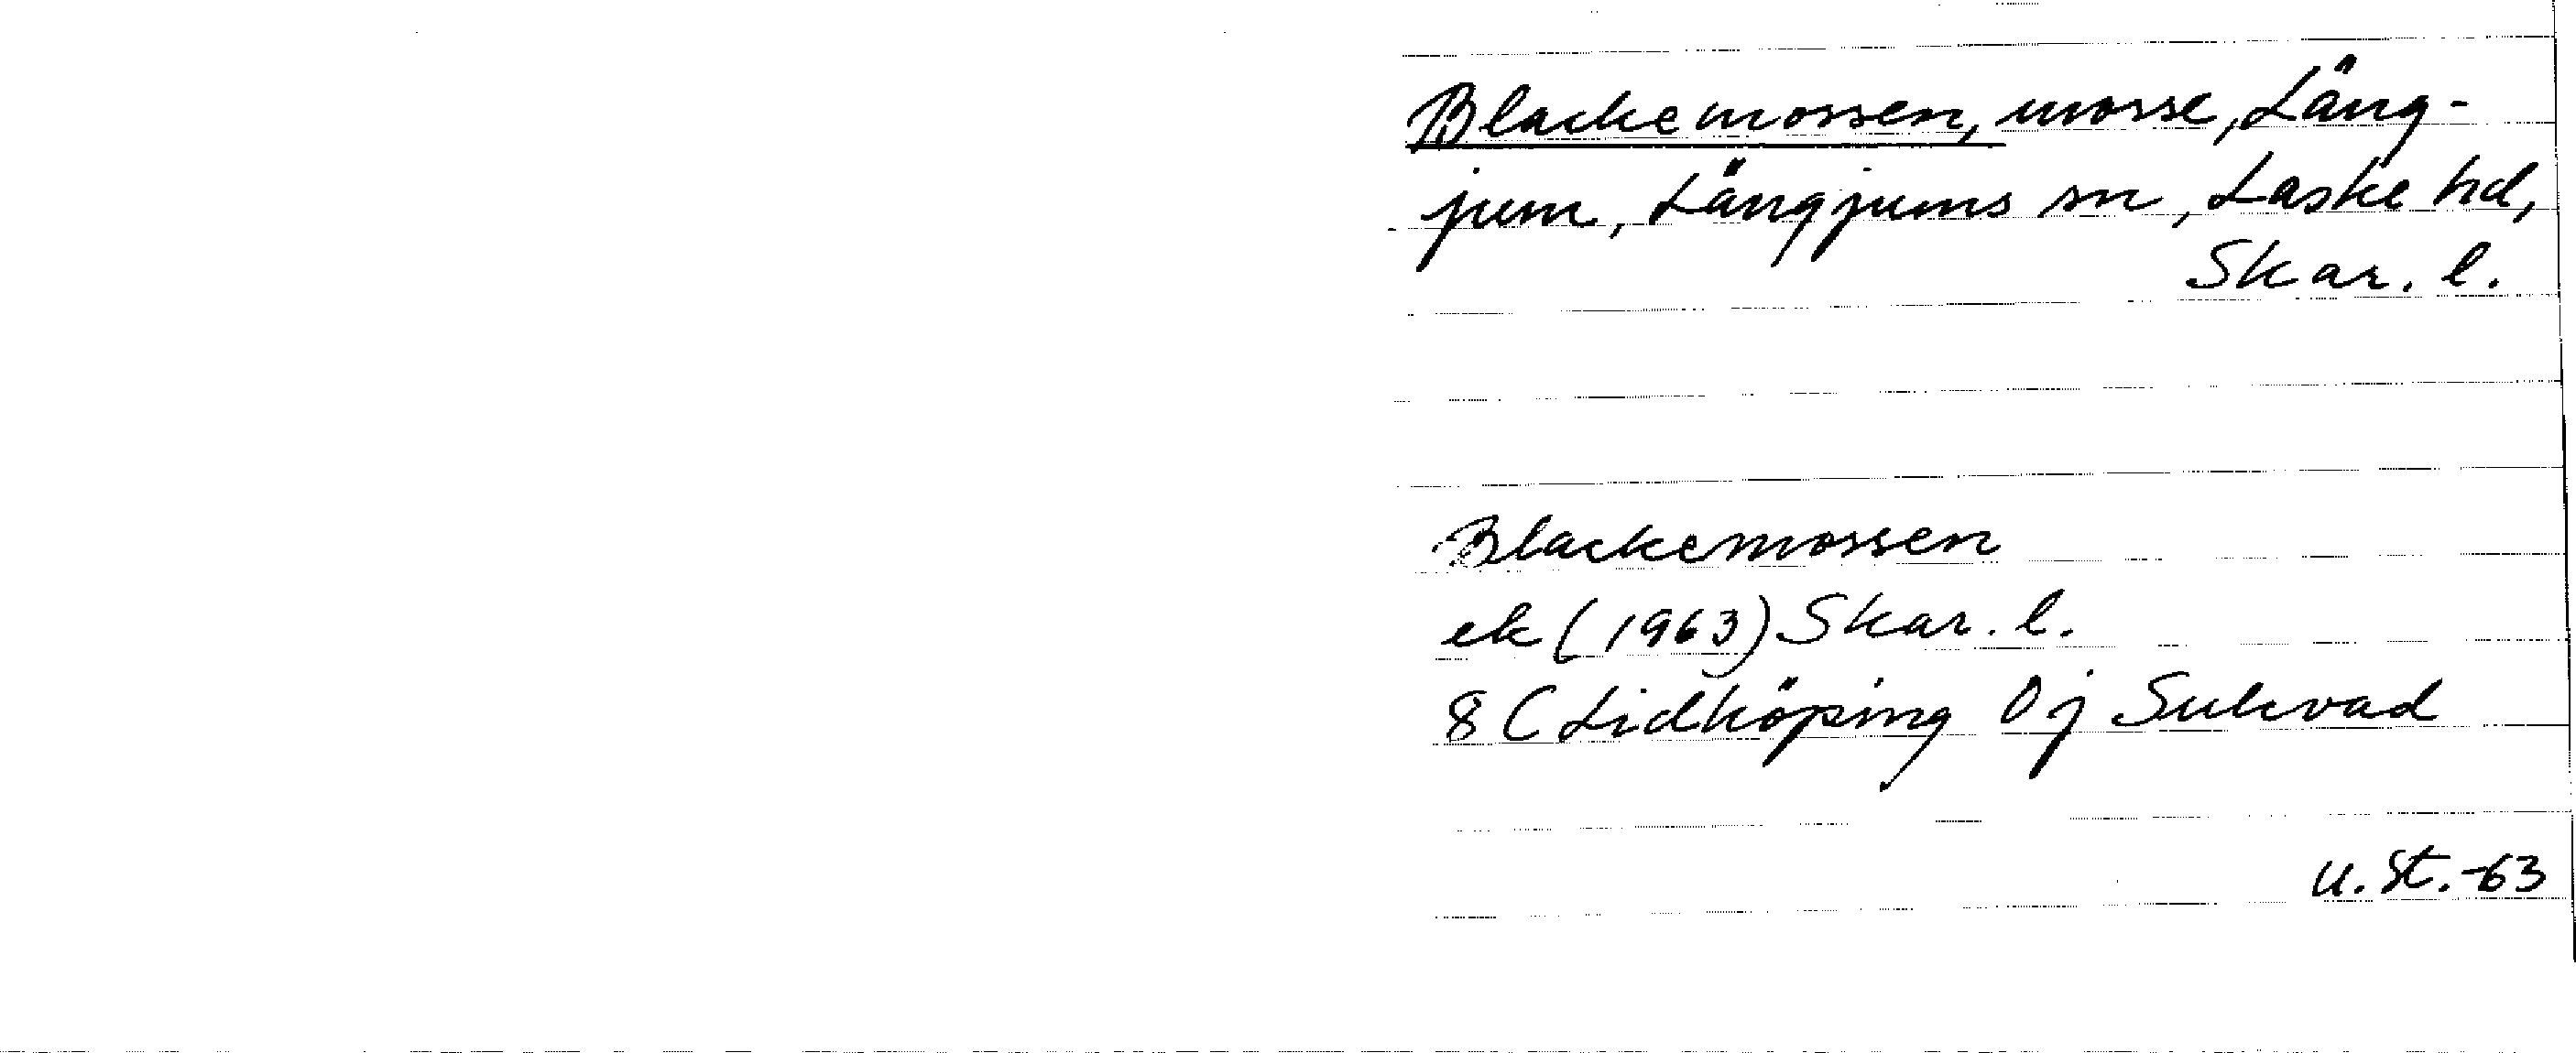 Blackemossen, mosse, Läng-
jum, Längjums sn, Laske hd,
Skar. l.
Blackemossen
ek (1963) Skar. l.
8 C Lidköping 0 j Sulvad
U. St. -63